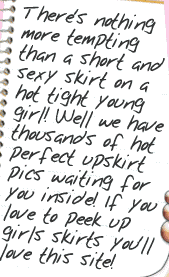 There's nothing
more tempting
than a short and
sexy skirt on a
hot tight young
girl! Well we have
thousands of hot
perfect upskirt
pics waiting for
you inside! If you
love to peek up
girls skirts you'll
love this site!